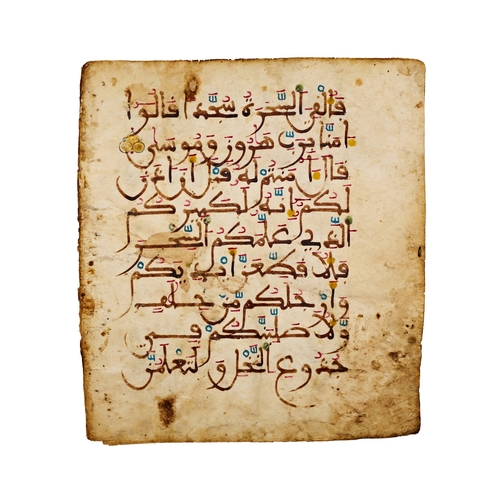 فألقي السحرة سجدا قالوا
امنا برب هرون وموسى
قال امنتم له قبل أن اذن
لكم إنه لكبيركم
الذي علمكم السحر
فلأقطعن أيديكم
وأرجلكم من خلف
ولأصلبنكم في
جذوع النخل ولتعلمن